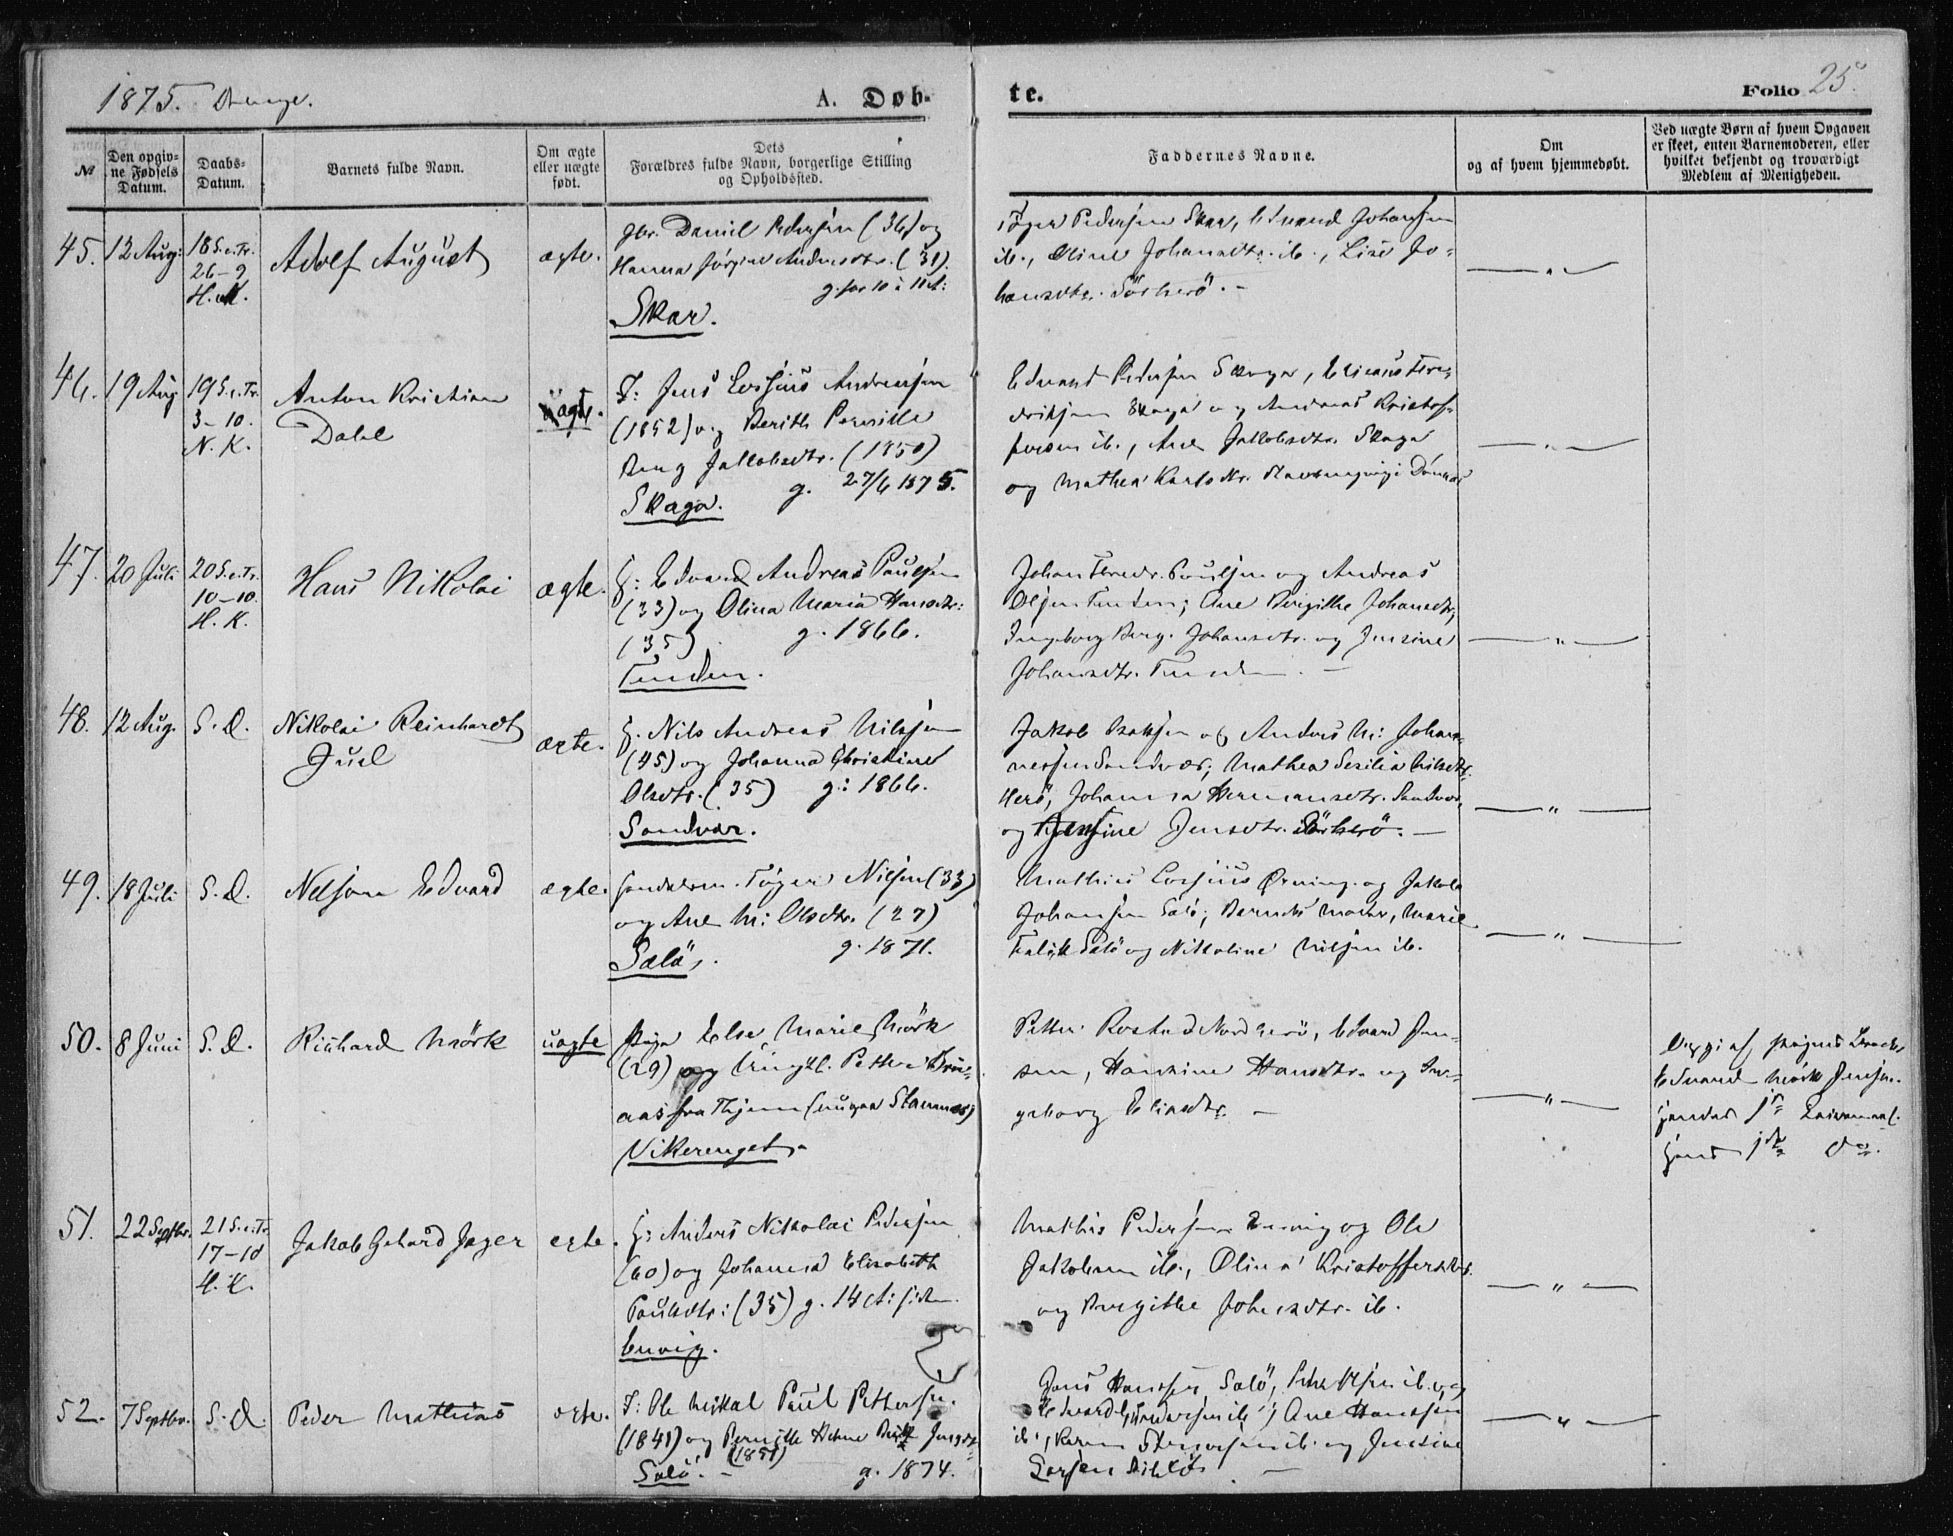 1875. Drenge.
A. Døb-
te.
Folio 25.
№
Den opgiv-
ne Fødsels
Datum.
Daabs-
Datum.
Barnets fulde Navn.
Om ægte
eller uægte
født.
Dets
Forældres fulde Navn, borgerlige Stilling
og Opholdssted.
Faddernes Navne.
Om
og af hvem hjemmedøbt.
Ved uægte Børn af hvem Opgaven
er skeet, enten Barnemoderen, eller
hvilket bekjendt og troværdigt
Medlem af Menigheden.
45. 12 Aug:
18 S. e. Tr.
26-9
H. K.
Adolf August
ægte.
Gbr. Daniel Pedersen (36) og
Hanna Jørgine Andersdtr. (31)
g. for 10 à 11 A:
Skar.
Pedersen Skar, Edvard Johansen
ib., Oline Johansdtr. ib., Lise Jo-
hansdtr. Sörherö. -
— " —
46. 19 Aug
19 S. e. Tr.
3-10.
N. K.
Anton Kristian
Dahl
uægte.
F: Jens Andreas
(1852) og Berith Pernille
Jakobsdtr. (1850)
g. 27/6 1875.
Skaga.
Edvard Pedersen Skaga,
Skaga og Andreas Kristof-
fersen ib., Ane Jakobsdtr. Skaga
og Mathea Karlsdtr.
— " —
47. 20 Juli
20 S. e. Tr.
10-10.
H. K.
Hans Nikolai
ægte.
G: Edvard Andreas Paulsen
(33) og Olina Maria Hansdtr:
(35) g. 1866.
Tenden.
Johan Paulsen og Andreas
Olsen Tenden; Ane Birgithe Johansdtr,
Ingeborg Berg. Johansdtr. og Jensine
Johansdtr. Tenden —
— " —
48. 12 Aug. S. D.
Nikolai Reinhardt
Juel
ægte.
G. Nils Andreas Nilsen
(45) og Johanna Christine
Olsdtr. (35) g: 1866.
Sandvær.
Jakob Isaksen og Anders M: Johan-
nessen Sandvær; Mathea Sesilia Nilsdtr.
Herö, Johanna Hermansdtr. Sandvær,
og Jensine Jensdtr. Sörherö. —
— " —
49. 18 Juli S. D.
Nelson Edvard
ægte.
Töger Nilsen (33)
og Ane M: Olsdtr. (27)
g. 1871.
Salö.
Mathias og Jakob
Johansen Salö; Barnets Moder, Marie
Falck Salö og Nikoline Nilsen ib.
— " —
50. 8 Juni S. D.
Richard Mörk
uægte
Pige Else Marie Mörk
(29) og Ungkl. Petter
aas fra Hjem
Vikerenget.
Petter Nordherö, Edvard Jen-
sen, Hansine Hansdtr. og In-
geborg Eliasdtr. —
— " —
Opg. af Pigens Broder
Edvard Mörk Jensen.
Hendes 1ste Leiermaal.
Hans 1ste do.
51. 22 Septbr.
21 S. e. Tr.
17-10
H. K.
Jakob Gerhard Jager
ægte.
G: Anders Nikolai Pedersen
(40) og Johanna Elisabeth
Paulsdtr: (35) g. 14 A: siden.
Envig.
Mathis Pedersen Envig og Ole
Jakobsen ib., Olina Kristoffersdtr.
og Birgithe Johansdtr. ib.
— " —
52. 7 Septbr. S. D.
Peder Mathias
ægte.
F: Ole Mikal Paul Pettersen.
(1841) og Pernille Helene Berit
(1851)
Salö. — g. 1874.
Jens Hansen Salö, ib. og
Edvard ib; Ane Hansen
ib., Karen ib. og Jensine
Larsen
— " —